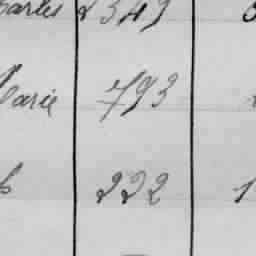 2349
Marie 793
222 1